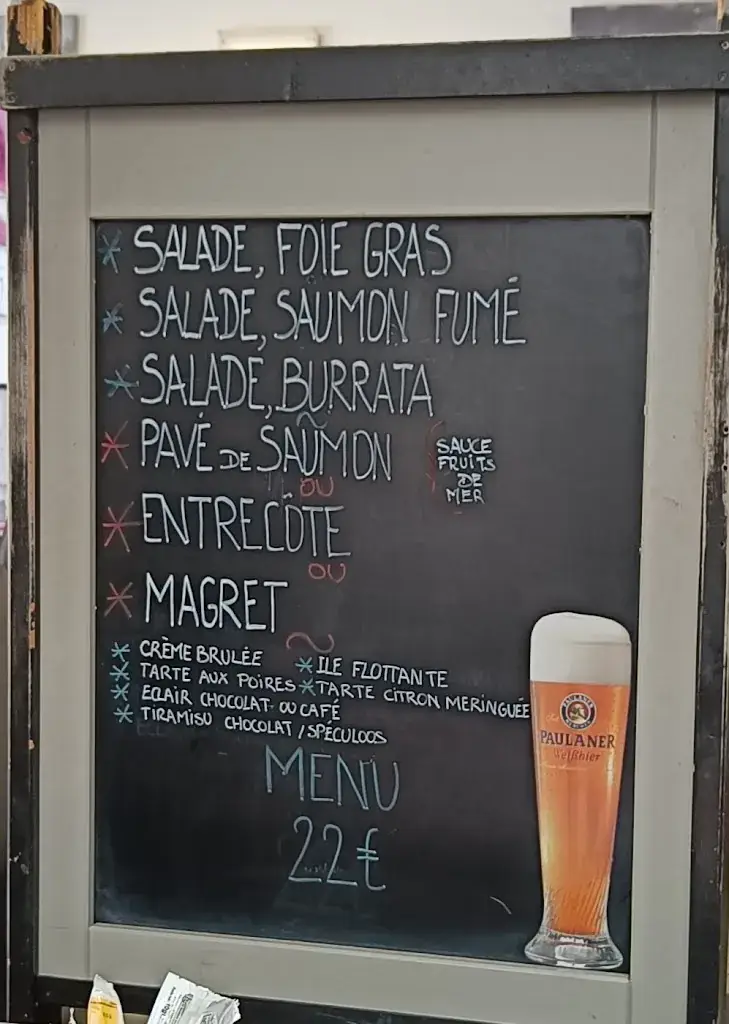 * SALADE, FOIE GRAS
* SALADE, SAUMON FUMÉ
* SALADE, BURRATA
~
* PAVÉ DE SAUMON
SAUCE
FRUITS
DE
MER
OU
* ENTRECÔTE
OU
* MAGRET
~
* CRÈME BRULÉE * ILE FLOTTANTE
* TARTE AUX POIRES * TARTE CITRON MERINGUÉE
* ECLAIR CHOCOLAT OU CAFÉ
* TIRAMISU CHOCOLAT / SPÉCULOOS
MENU
22€
PAULANER
Weißbier